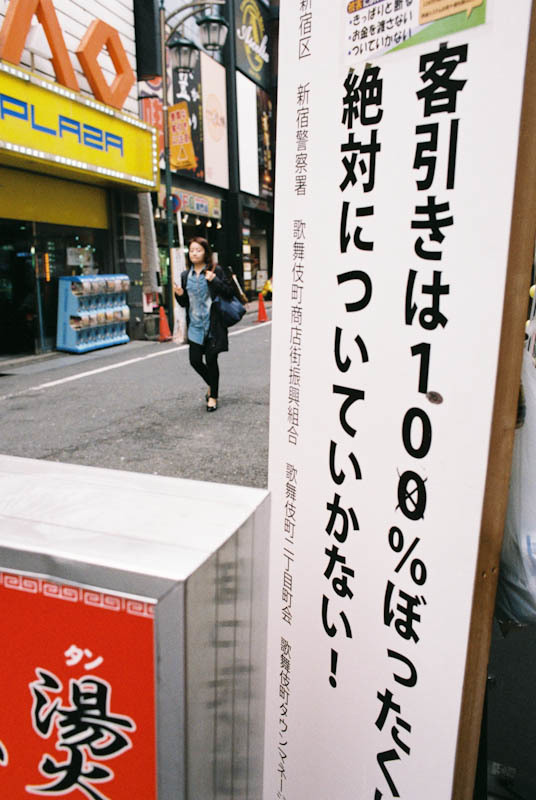 客引きは100%ぼったく
絶対についていかない!
新宿区 新宿警察署 歌舞伎町商店街振興組合 歌舞伎町二丁目町会 歌舞伎町タウンマネー
きっぱりと断る
お金を渡さない
ついていかない
PLAZA
タン
湯火